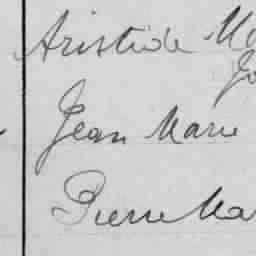 Aristide
Jean Marie
Pierre Ma